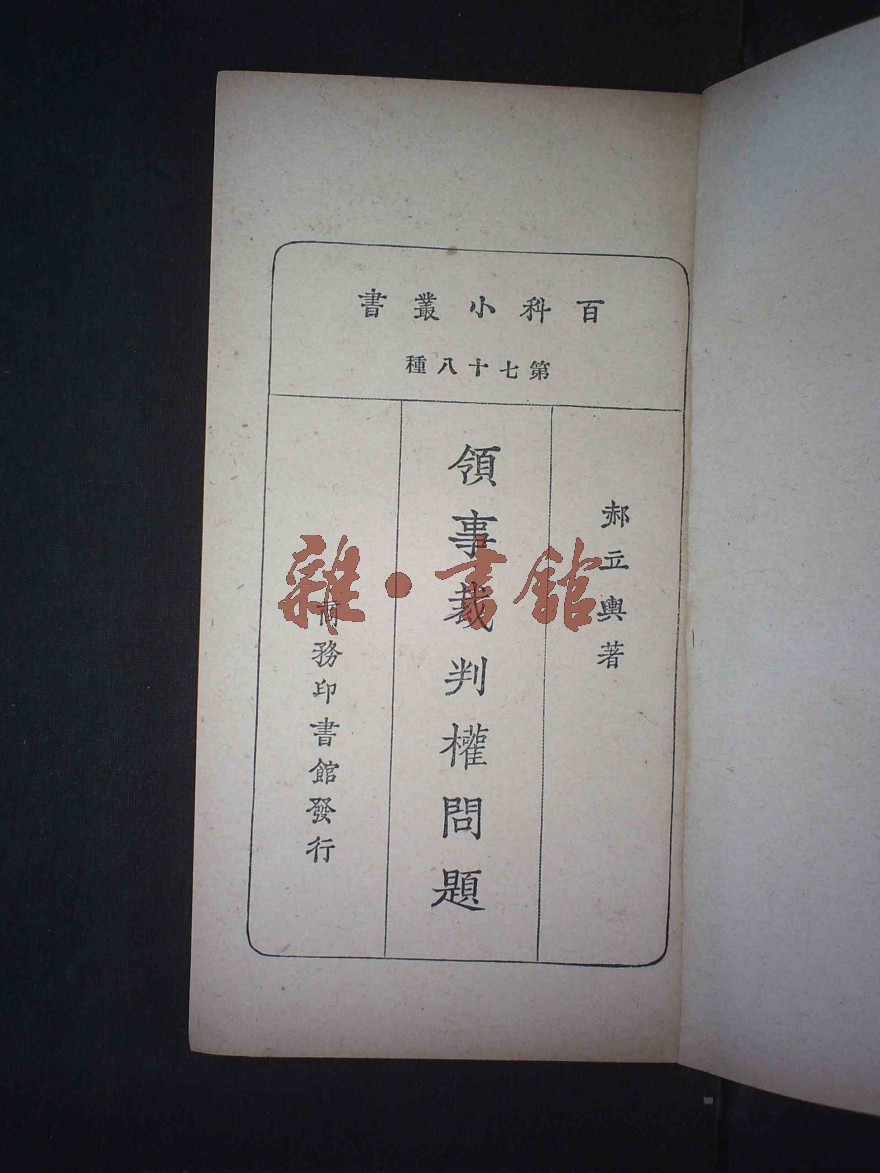 百科小叢書
第七十八種
郝立輿著
領事裁判權問題
商務印書館發行
雜·書館